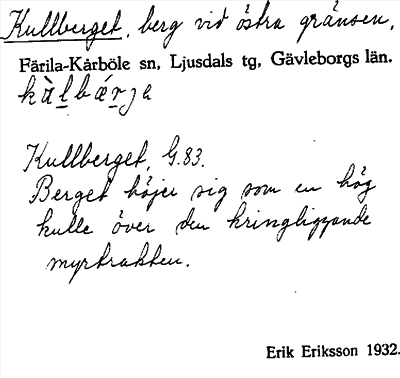 Kullberget, berg vid östra gränsen,
Färila-Kårböle sn, Ljusdals tg, Gävleborgs län.
kàlbárja
Kullberget, G.83.
Berget höjer sig som en hög
kulle över den kringliggande
myrtrakten.
Erik Eriksson 1932.